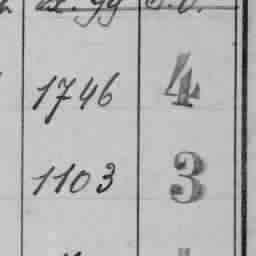 1746 4
1103 3